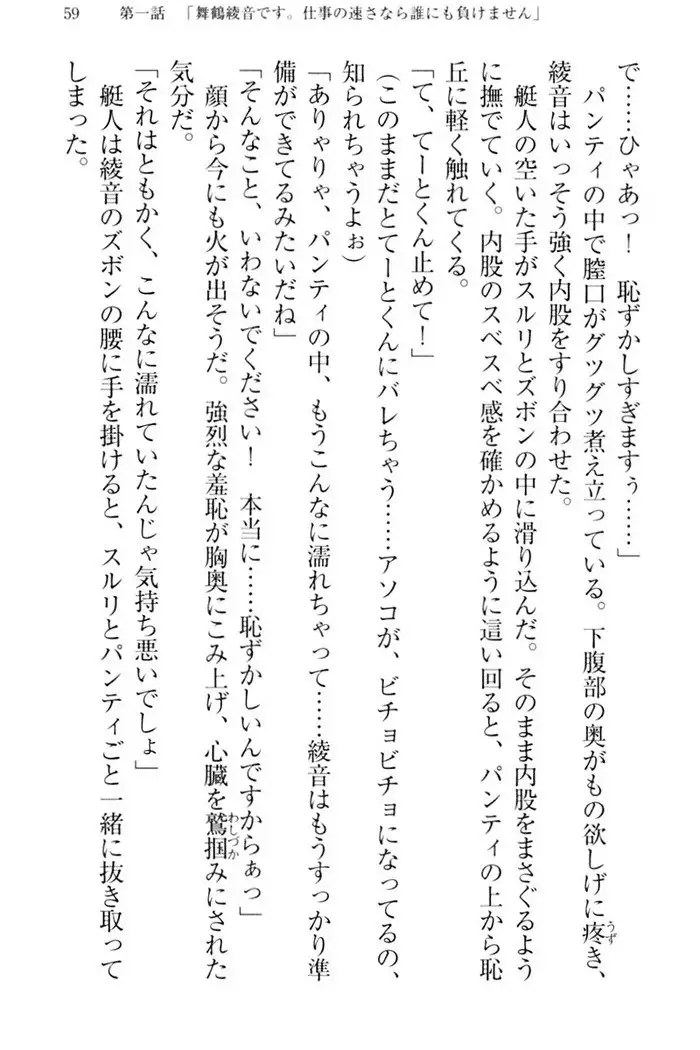 59　第一話　「舞鶴綾音です。仕事の速さなら誰にも負けません」
で……ひゃあっ！　恥ずかしすぎますぅ……」
　パンティの中で膣口がグツグツ煮え立っている。下腹部の奥がもの欲しげに疼き、
綾音はいっそう強く内股をすり合わせた。
　艇人の空いた手がスルリとズボンの中に滑り込んだ。そのまま内股をまさぐるよう
に撫でていく。内股のスベスベ感を確かめるように這い回ると、パンティの上から恥
丘に軽く触れてくる。
「て、てーとくん止めて！」
（このままだとてーとくんにバレちゃう……アソコが、ビチョビチョになってるの、
知られちゃうよぉ）
「ありゃりゃ、パンティの中、もうこんなに濡れちゃって……綾音はもうすっかり準
備ができてるみたいだね」
「そんなこと、いわないでください！　本当に……恥ずかしいんですからぁっ」
　顔から今にも火が出そうだ。強烈な羞恥が胸奥にこみ上げ、心臓を鷲掴みにされた
気分だ。
「それはともかく、こんなに濡れていたんじゃ気持ち悪いでしょ」
　艇人は綾音のズボンの腰に手を掛けると、スルリとパンティごと一緒に抜き取って
しまった。